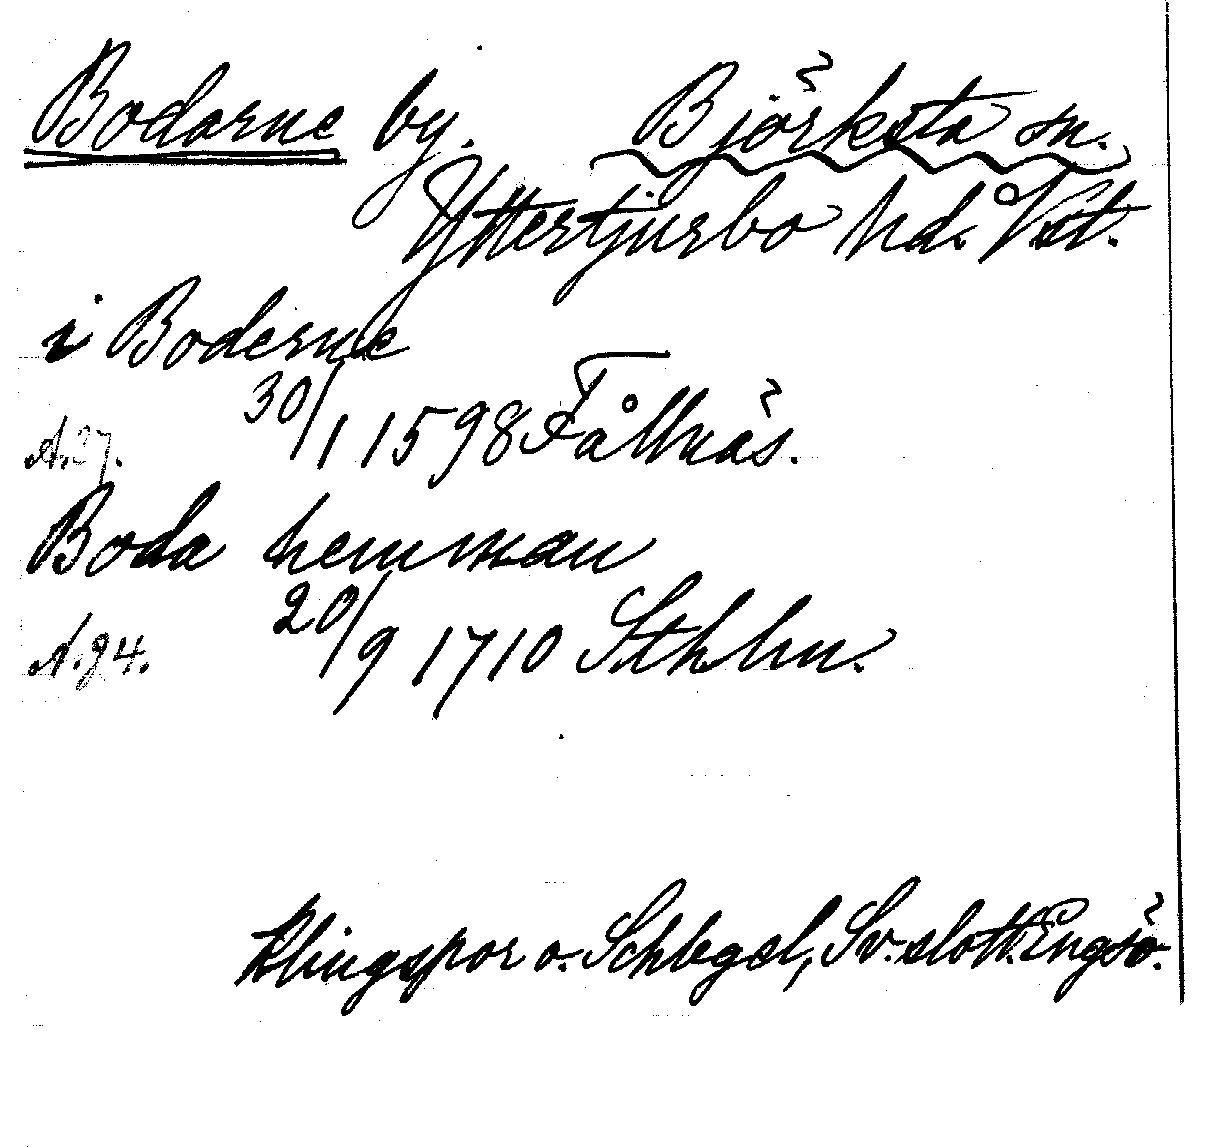 Bodarne by. Björksta sn.
Yttertjurbo hd. Vst.
i Boderne
A.27. 30/1 1598 Fållnäs.
Boda hemman
A.94. 20/9 1710 Sthlm.
Klingspor o. Schlegel, Sv. slott. Engsö.